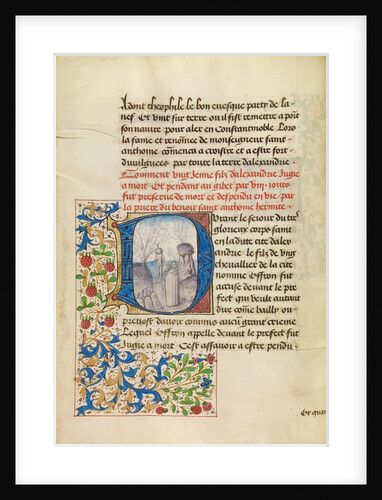 Adont theophile le bon evesque party de la
nef Et vint sur terre ou il fist remettre a point
son navire pour aler en Constantinoble Lors
la fame et renommee de monseigneur saint
anthoine commenca a croistre et a estre fort
divulguees par toute la terre dalexandre.
Comment ung Jenne filz dalexandre Jugie
a mort Et pendant au gibet par viij. iours
fut preserve de mort et despendu en vie par
la priere du benoit saint anthoine hermite
Durant le seiour du tres
glorieux corps saint
en la dite cite dalex
andre le filz de ung
chevallier de la cite
nomme Effron fut
accuse devant le pre
fect qui vault autant
dire come bailly ou
prevost davoir commis aucun grant crieme
Lequel Effron appelle devant le prefect fut
Jugie a mort Cest assavoir a estre pendu.
Et quant